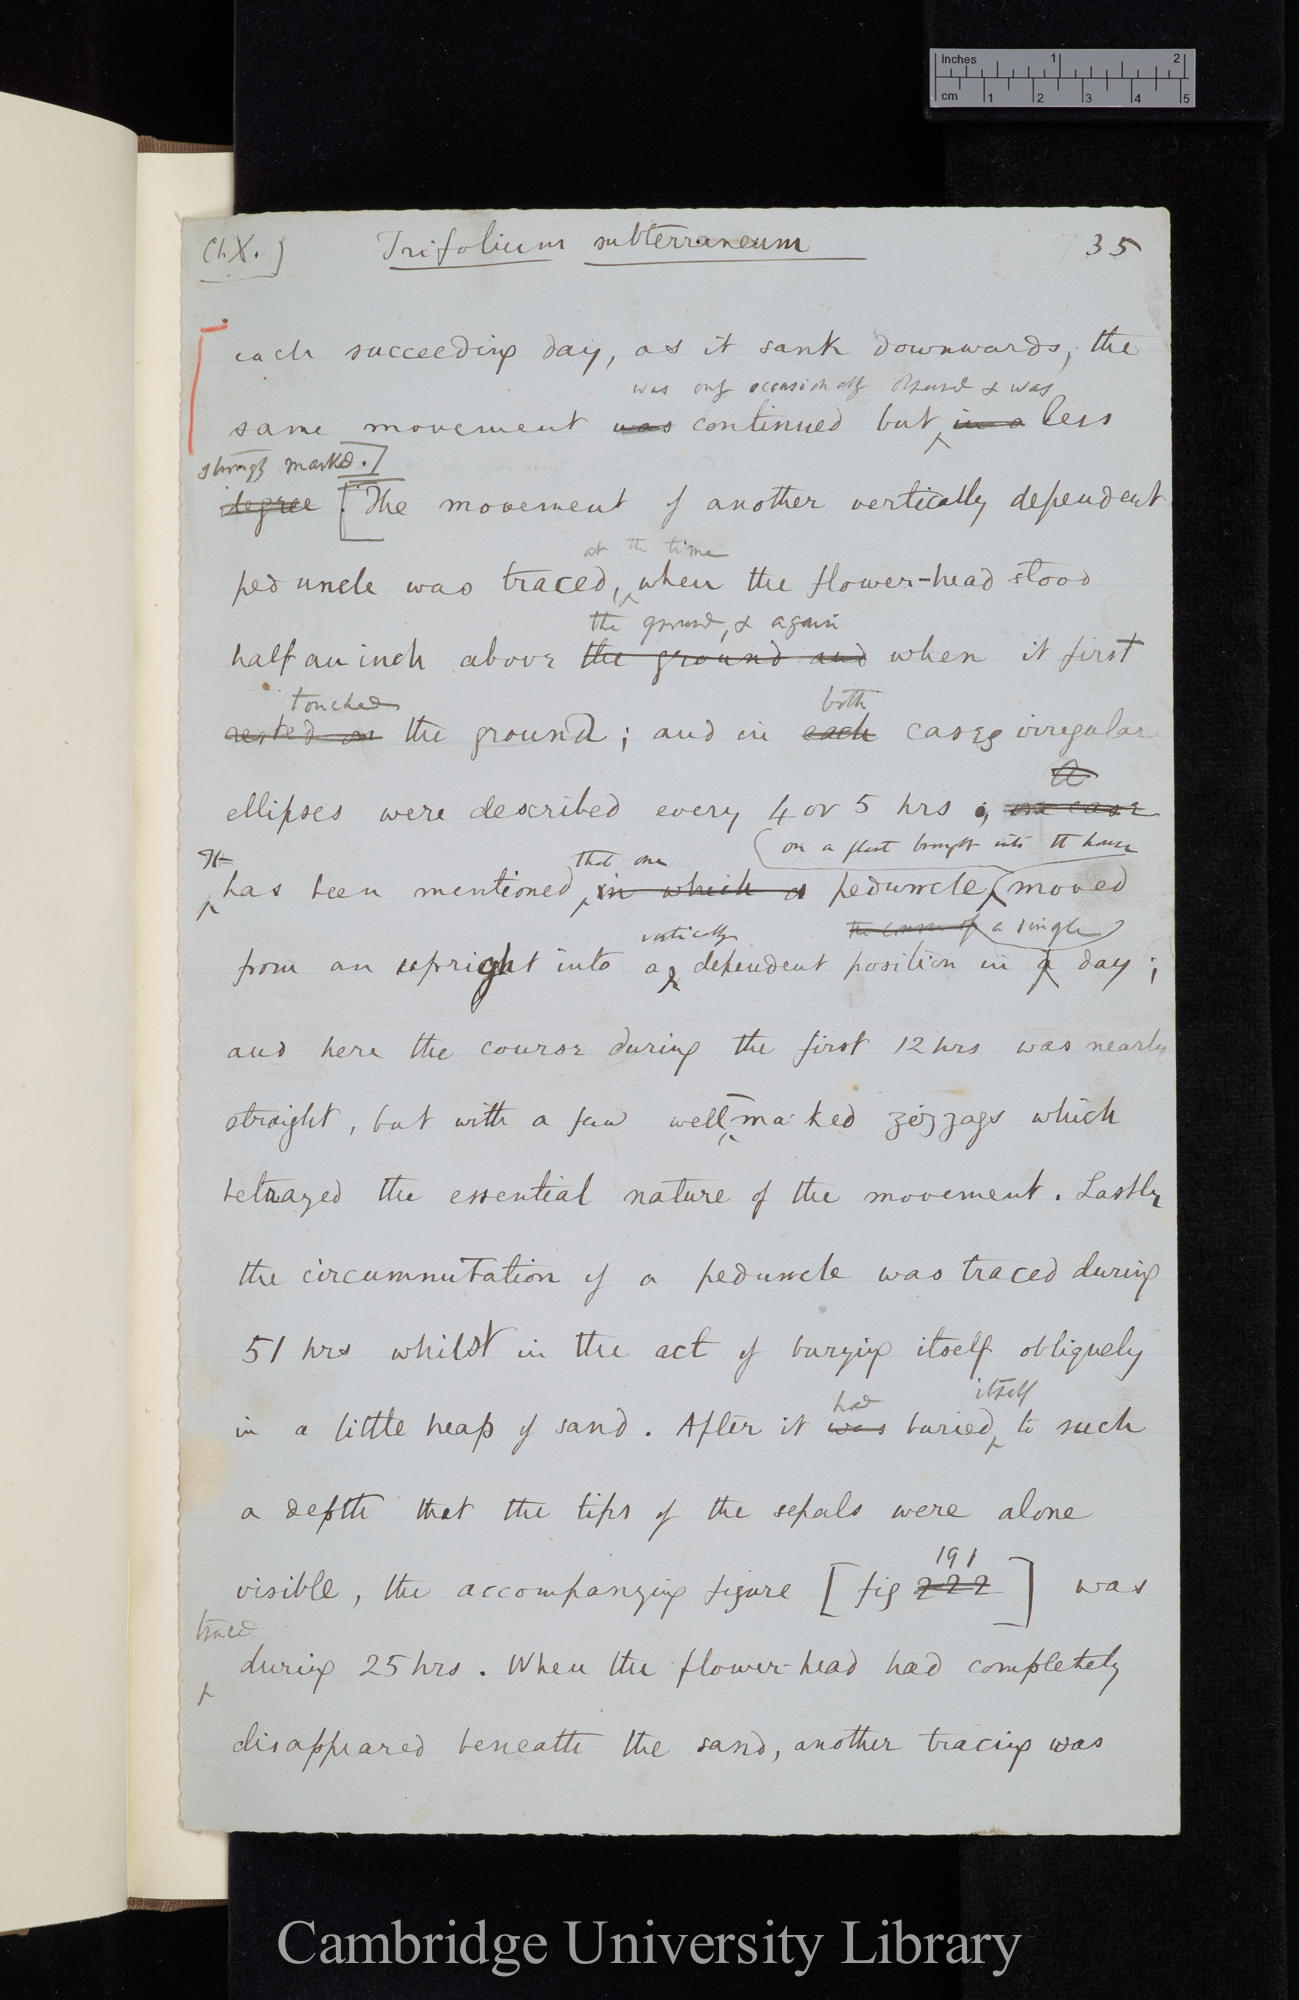 Inches 1 2
cm 1 2 3 4 5
Ch X.) Trifolium subterraneum 35
each succeeding day, as it sank downwards, the
was only occasionally observed & was
same movement was continued but in a less
strongly marked.]
degree [The movement of another vertically dependent
at the time
peduncle was traced, when the flower-head stood
the ground, & again
half an inch above the ground and when it first
touched both
rested on the ground; and in each cases irregular
A
ellipses were described every 4 or 5 hrs; one case
on a plant brought into the house
It that one
has been mentioned, in which a peduncle, moved
vertically the course of a single
from an upright into a dependent position in a day;
and here the course during the first 12 hrs was nearly
straight, but with a few well-marked zigzags which
betrayed the essential nature of the movement. Lastly
the circumnutation of a peduncle was traced during
51 hrs whilst in the act of burying itself obliquely
had itself
in a little heap of sand. After it was buried, to such
a depth that the tips of the sepals were alone
191
visible, the accompanying figure [fig 222] was
traced
during 25 hrs. When the flower-head had completely
disappeared beneath the sand, another tracing was
Cambridge University Library